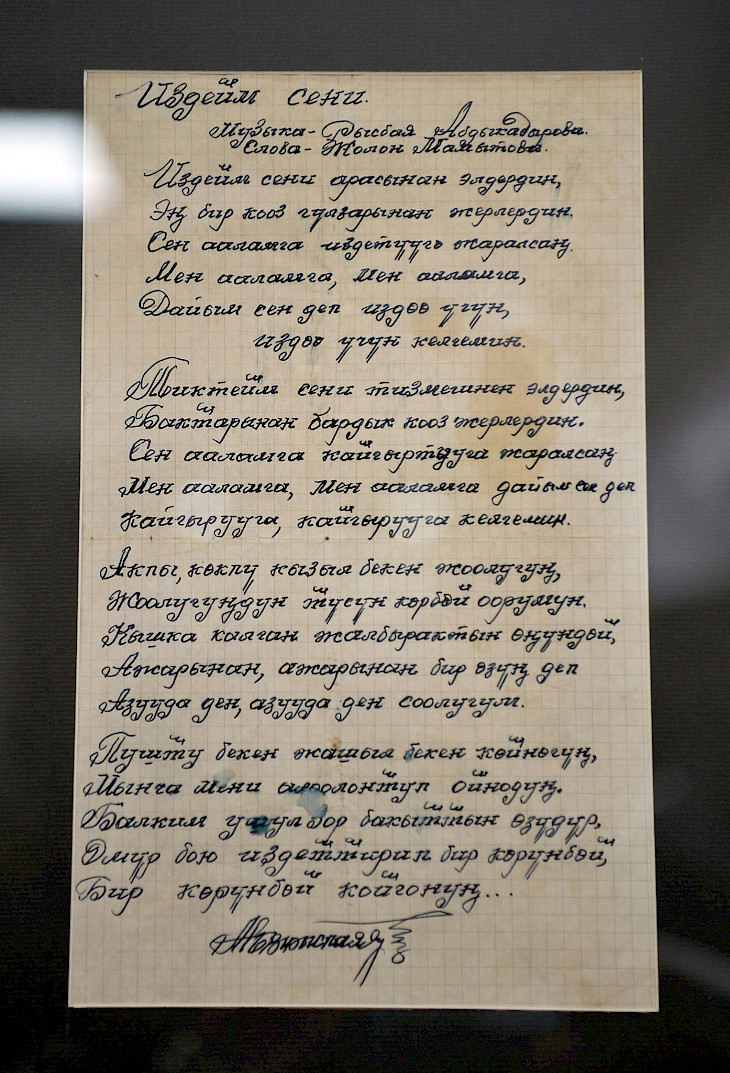 Издейм сени.
Музыка - Рысбая Абдыкадырова.
Слова - Жолон Мамытова.
Издейм сени арасынан элдердин,
Эң бир кооз гүлзарынан жерлердин.
Сен ааламга издетүүгө жаралсаң.
Мен ааламга, мен ааламга,
Дайым сен деп издөө үчүн,
издөө үчүн келгемин.
Тиктейм сени тизмегинен элдердин,
Бактарынан бардык кооз жерлердин.
Сен ааламга кайгыртууга жаралсаң
Мен ааламга, мен ааламга дайым сен деп
кайгырууга, кайгырууга келгемин.
Акпы, көкпү кызыл бекен жоолугуң,
Жоолугуңдун түсүн көрбөй оорумун.
Кышка калган жалбырактын өңүндөй,
Ажарынан, ажарынан бир өзүң деп
Азууда ден, азууда ден соолугум.
Пуштү бекен жашыл бекен көйнөгүң,
Мынча мени алоолонтуп ойнодуң.
Балким ушул бор бакыттын өзүдүр,
Өмүр бою издеттирип бир көрүнбөй,
Бир көрүнбөй койгонуң...